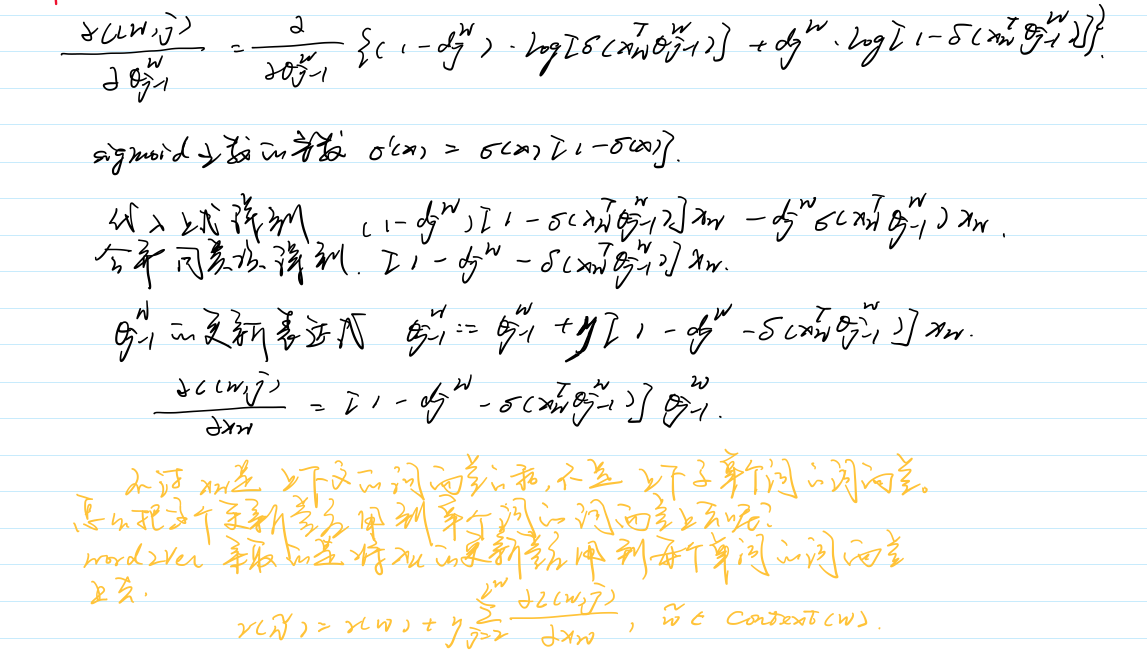 ∂L(w,j)/∂θ_{j-1}^w = ∂/∂θ_{j-1}^w {(1-d_j^w)·log[σ(x_w^T θ_{j-1}^w)] + d_j^w·log[1-σ(x_w^T θ_{j-1}^w)]}.
sigmoid 函数的导数 σ'(x) = σ(x)[1-σ(x)].
代入上式得到 (1-d_j^w)[1-σ(x_w^T θ_{j-1}^w)]x_w - d_j^w σ(x_w^T θ_{j-1}^w)x_w.
合并同类项得到. [1-d_j^w-σ(x_w^T θ_{j-1}^w)]x_w.
θ_{j-1}^w 的更新表达式 θ_{j-1}^w := θ_{j-1}^w + η[1-d_j^w-σ(x_w^T θ_{j-1}^w)]x_w.
∂L(w,j)/∂x_w = [1-d_j^w-σ(x_w^T θ_{j-1}^w)]θ_{j-1}^w.
不过 x_w是上下文的词向量的和,不是上下文单个词的词向量。
怎么把这个更新量应用到单个词的词向量上去呢?
word2vec 采取的是将x_w的更新量应用到每个单词的词向量
上去.
v(w̃) = v(w̃) + η Σ_{j=2}^{l^w} ∂L(w,j)/∂x_w, w̃ ∈ Context(w).